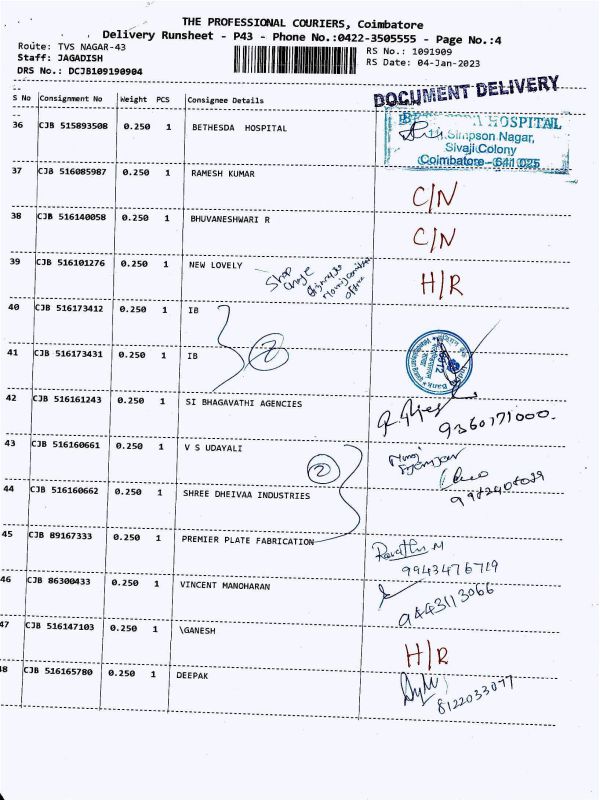 THE PROFESSIONAL COURIERS, Coimbatore
Delivery Runsheet - P43 - Phone No.:0422-3505555 - Page No.:4
Route: TVS NAGAR-43
RS No.: 1091909
Staff: JAGADISH
RS Date: 04-Jan-2023
DRS No.: DCJB109190904
DOCUMENT DELIVERY
S No Consignment No Weight PCS Consignee Details
36 CJB 515893508 0.250 1 BETHESDA HOSPITAL
HOSPITAL
Simpson Nagar,
Sivaji Colony
Coimbatore - 641 025
37 CJB 516085987 0.250 1 RAMESH KUMAR
C/N
38 CJB 516140058 0.250 1 BHUVANESHWARI R
C/N
39 CJB 516101276 0.250 1 NEW LOVELY
Shop
H/R
40 CJB 516173412 0.250 1 IB
2
41 CJB 516173431 0.250 1 IB
42 CJB 516161243 0.250 1 SI BHAGAVATHI AGENCIES
9360171000.
43 CJB 516160661 0.250 1 V S UDAYALI
2
44 CJB 516160662 0.250 1 SHREE DHEIVAA INDUSTRIES
45 CJB 89167333 0.250 1 PREMIER PLATE FABRICATION
Revathi M
9943476719
46 CJB 86300433 0.250 1 VINCENT MANOHARAN
9443113066
47 CJB 516147103 0.250 1 \GANESH
H/R
48 CJB 516165780 0.250 1 DEEPAK
8122033077